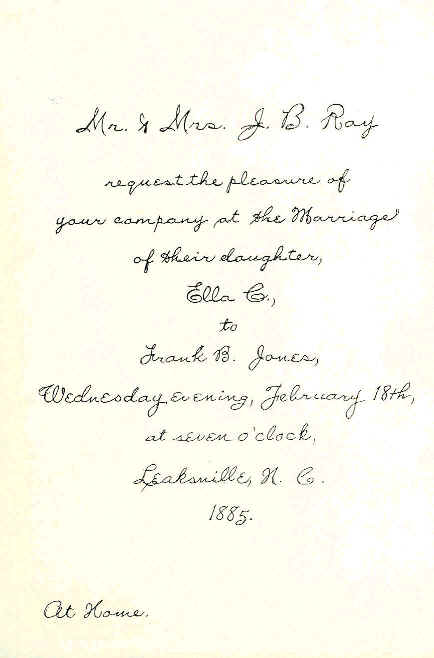 Mr. & Mrs. J. B. Ray
request the pleasure of
your company at the Marriage
of their daughter,
Ella C.,
to
Frank B. Jones,
Wednesday evening, February 18th,
at seven o'clock,
Leaksville, N. C.
1885.
At Home.